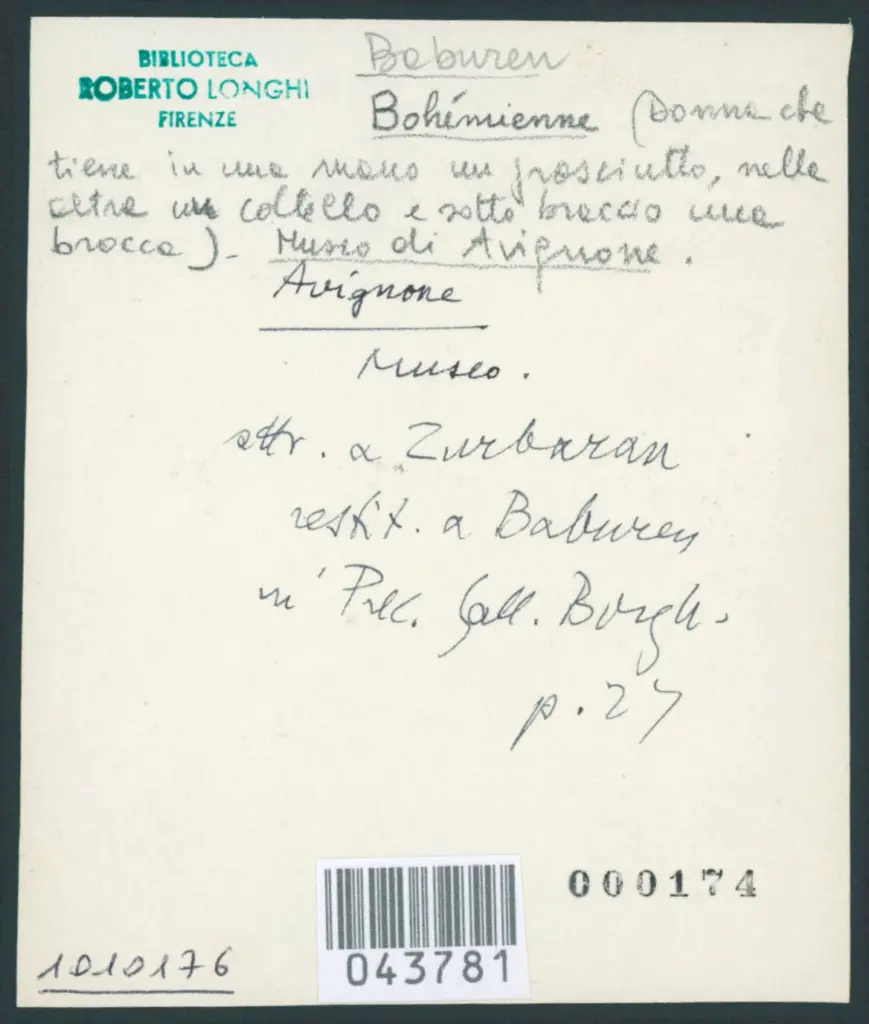 BIBLIOTECA
ROBERTO LONGHI
FIRENZE
Baburen
Bohémienne (Donna che
tiene in una mano un prosciutto, nella
altra un coltello e sotto braccio una
brocca). Museo di Avignone.
Avignone
Museo.
attr. a Zurbaran
restit. a Baburen
in Prec. Gall. Borgh.
p. 27
000174
043781
1010176